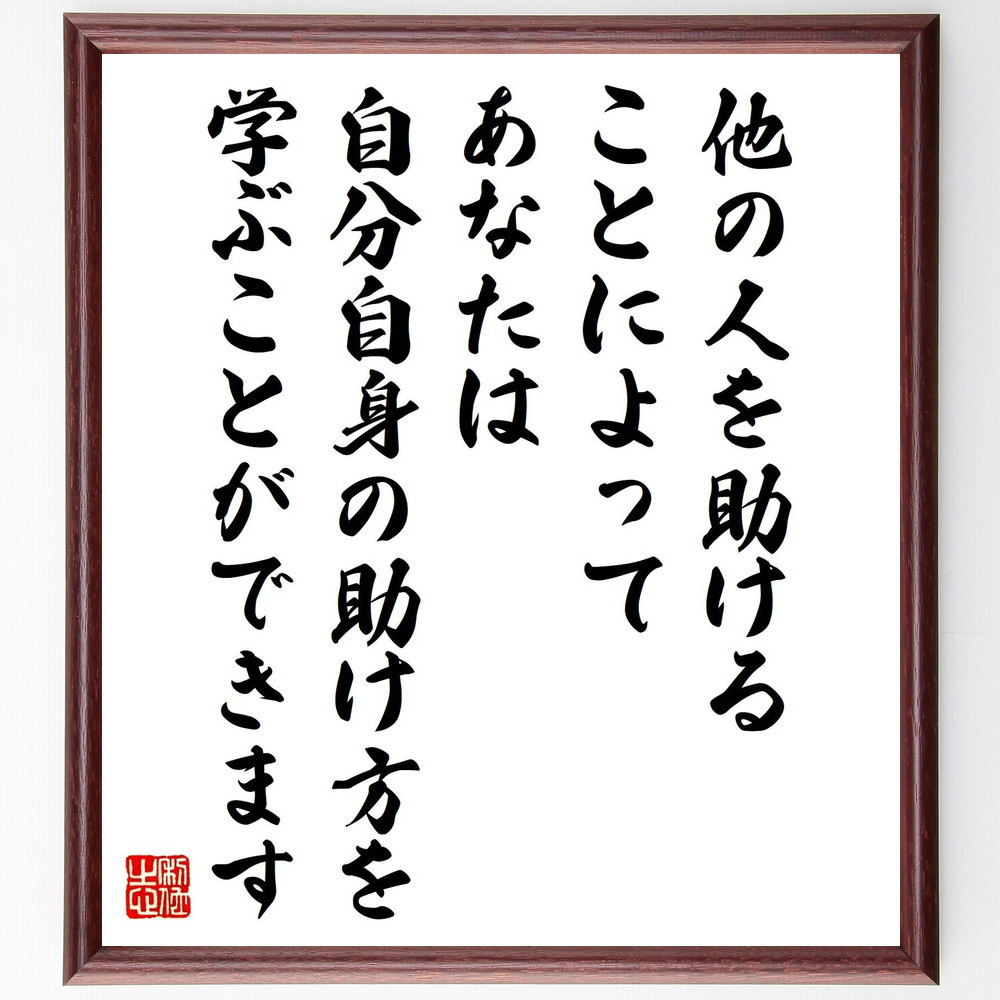 他の人を助ける
ことによって
あなたは
自分自身の助け方を
学ぶことができます